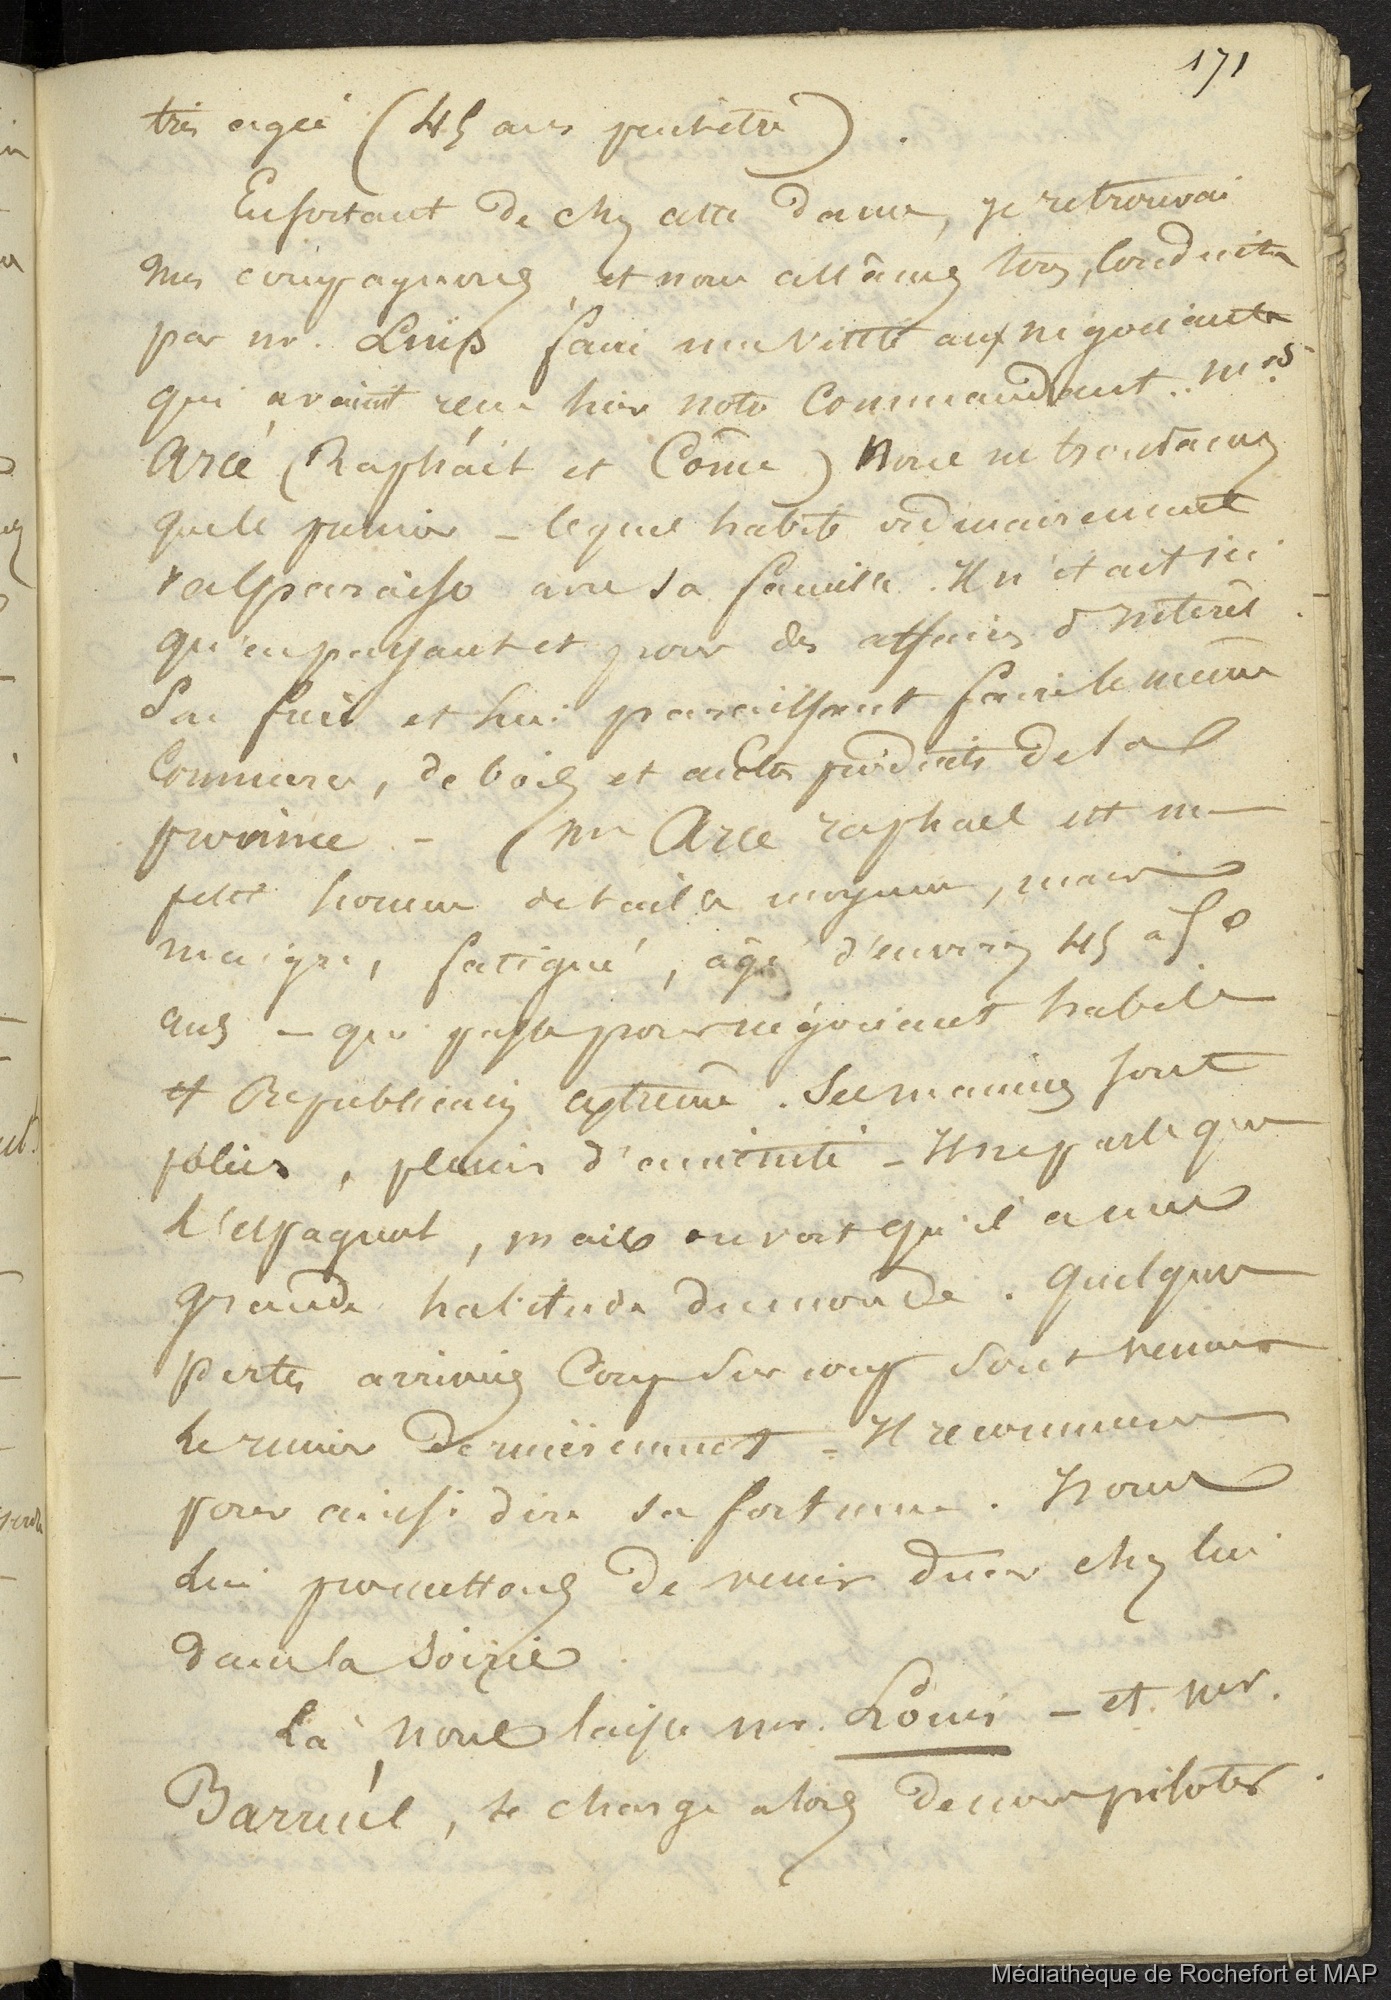 171
très agée (45 ans peutêtre).
En sortant de chez cette dame, je retrouvai
mes compagnons, et nous allâmes tous, conduits
par mr. Louis faire une visite aux négociants
qui avaient recu hier notre Commandant. mrs
Arcé (Raphaël et Côme) Nous ne trouvâmes
que le premier _ lequel habite ordinairement
valparaiso avec sa famille. Il n'était ici
qu'en passant et pour des affaires d'intérêt
Son frère et lui paraissant faire le même
Commerce, de bois et autres produits de la
province - (Mr Arce raphael est un
petit homme de taille moyenne, mais
maigre, fatigué, âgé d'environ 45 a 50
ans _ qui passe pour négociant habile
et Republicain extrême. Ses manières sont
polies, pleines d'aménité _ Il ne parle que
l'espagnol, mais on voit qu'il a une
grande habitude du monde. Quelques
pertes arrivées Coup sur coup sont venues
le ruiner dernièrement _ Il recommence
pour ainsi dire sa fortune. Nous
lui promettons de venir diner chez lui
dans la soirée
Là, nous laisse mr. Louis _ et mr.
Barruël, se charge alors de nous piloter.
Médiathèque de Rochefort et MAP